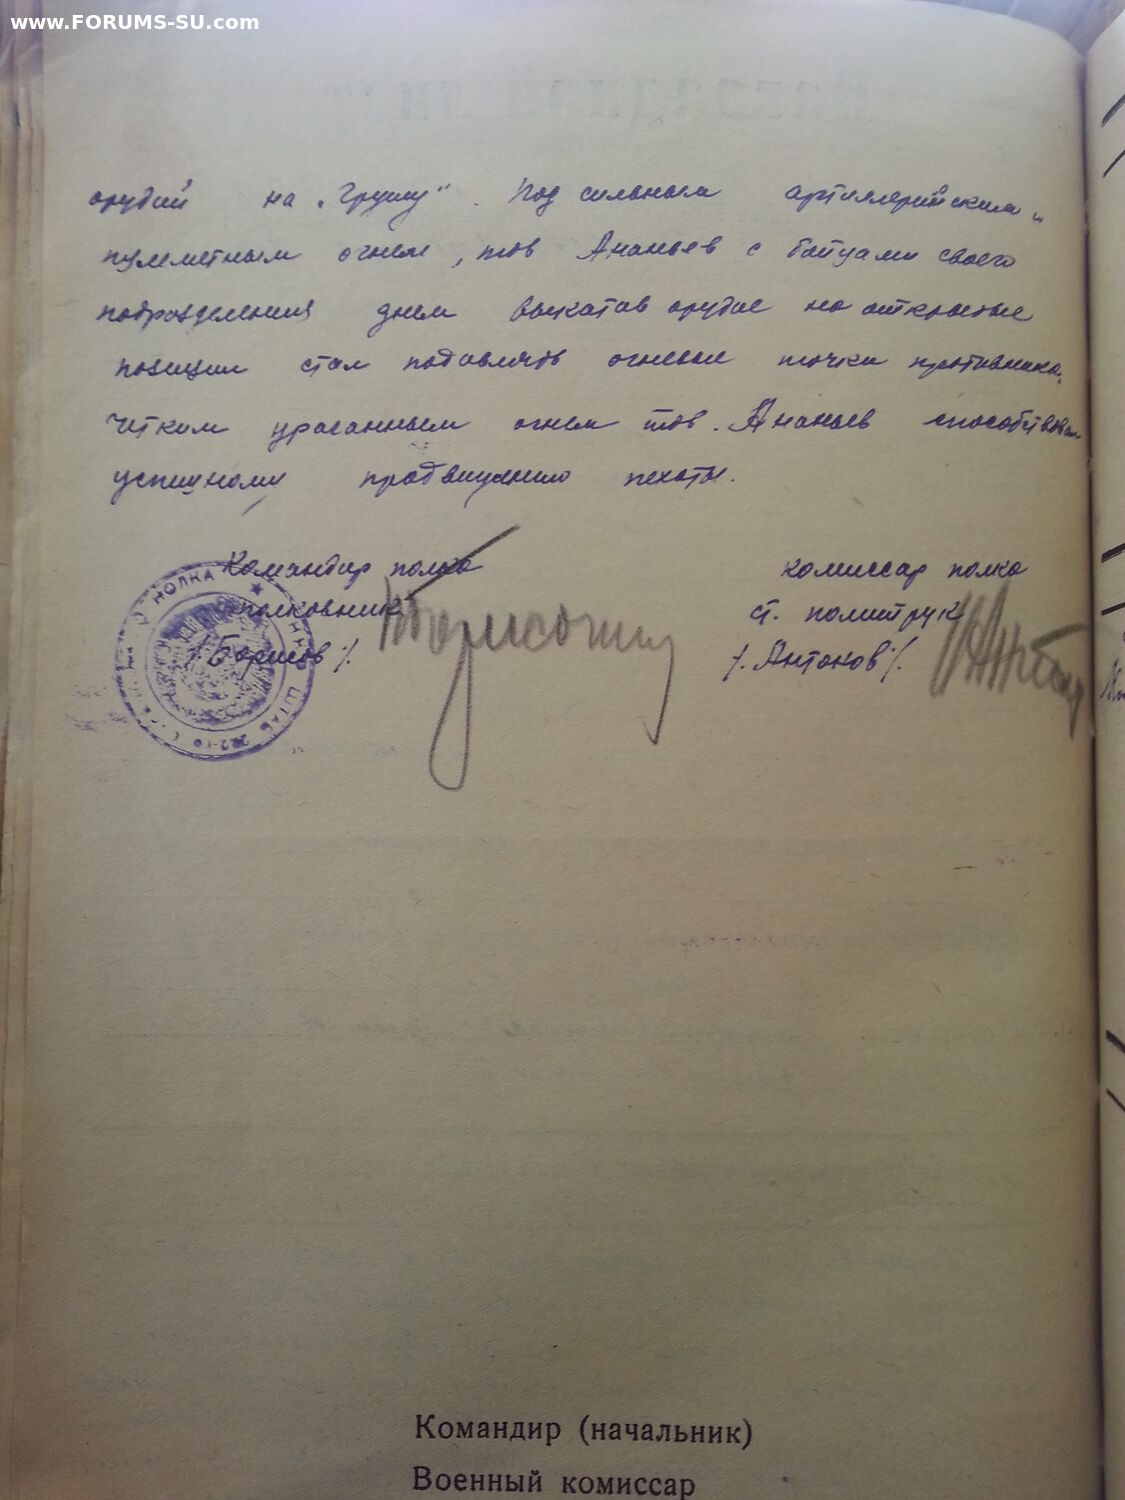 www.FORUMS-SU.com
орудий на „Грушу“. Под сильным артиллерийским и
пулеметным огнем, тов Ананьев с бойцами своего
подразделения днем выкатав орудие на открытые
позиции стал подавлять огневые точки противника.
Четким ураганным огнем тов. Ананьев способствовал
успешному продвижению пехоты.
Командир полка
полковник
/. Борисов ./.
комиссар полка
ст. политрук
/. Антонов ./.
ПОЛКА
ШТАБ
Командир (начальник)
Военный комиссар